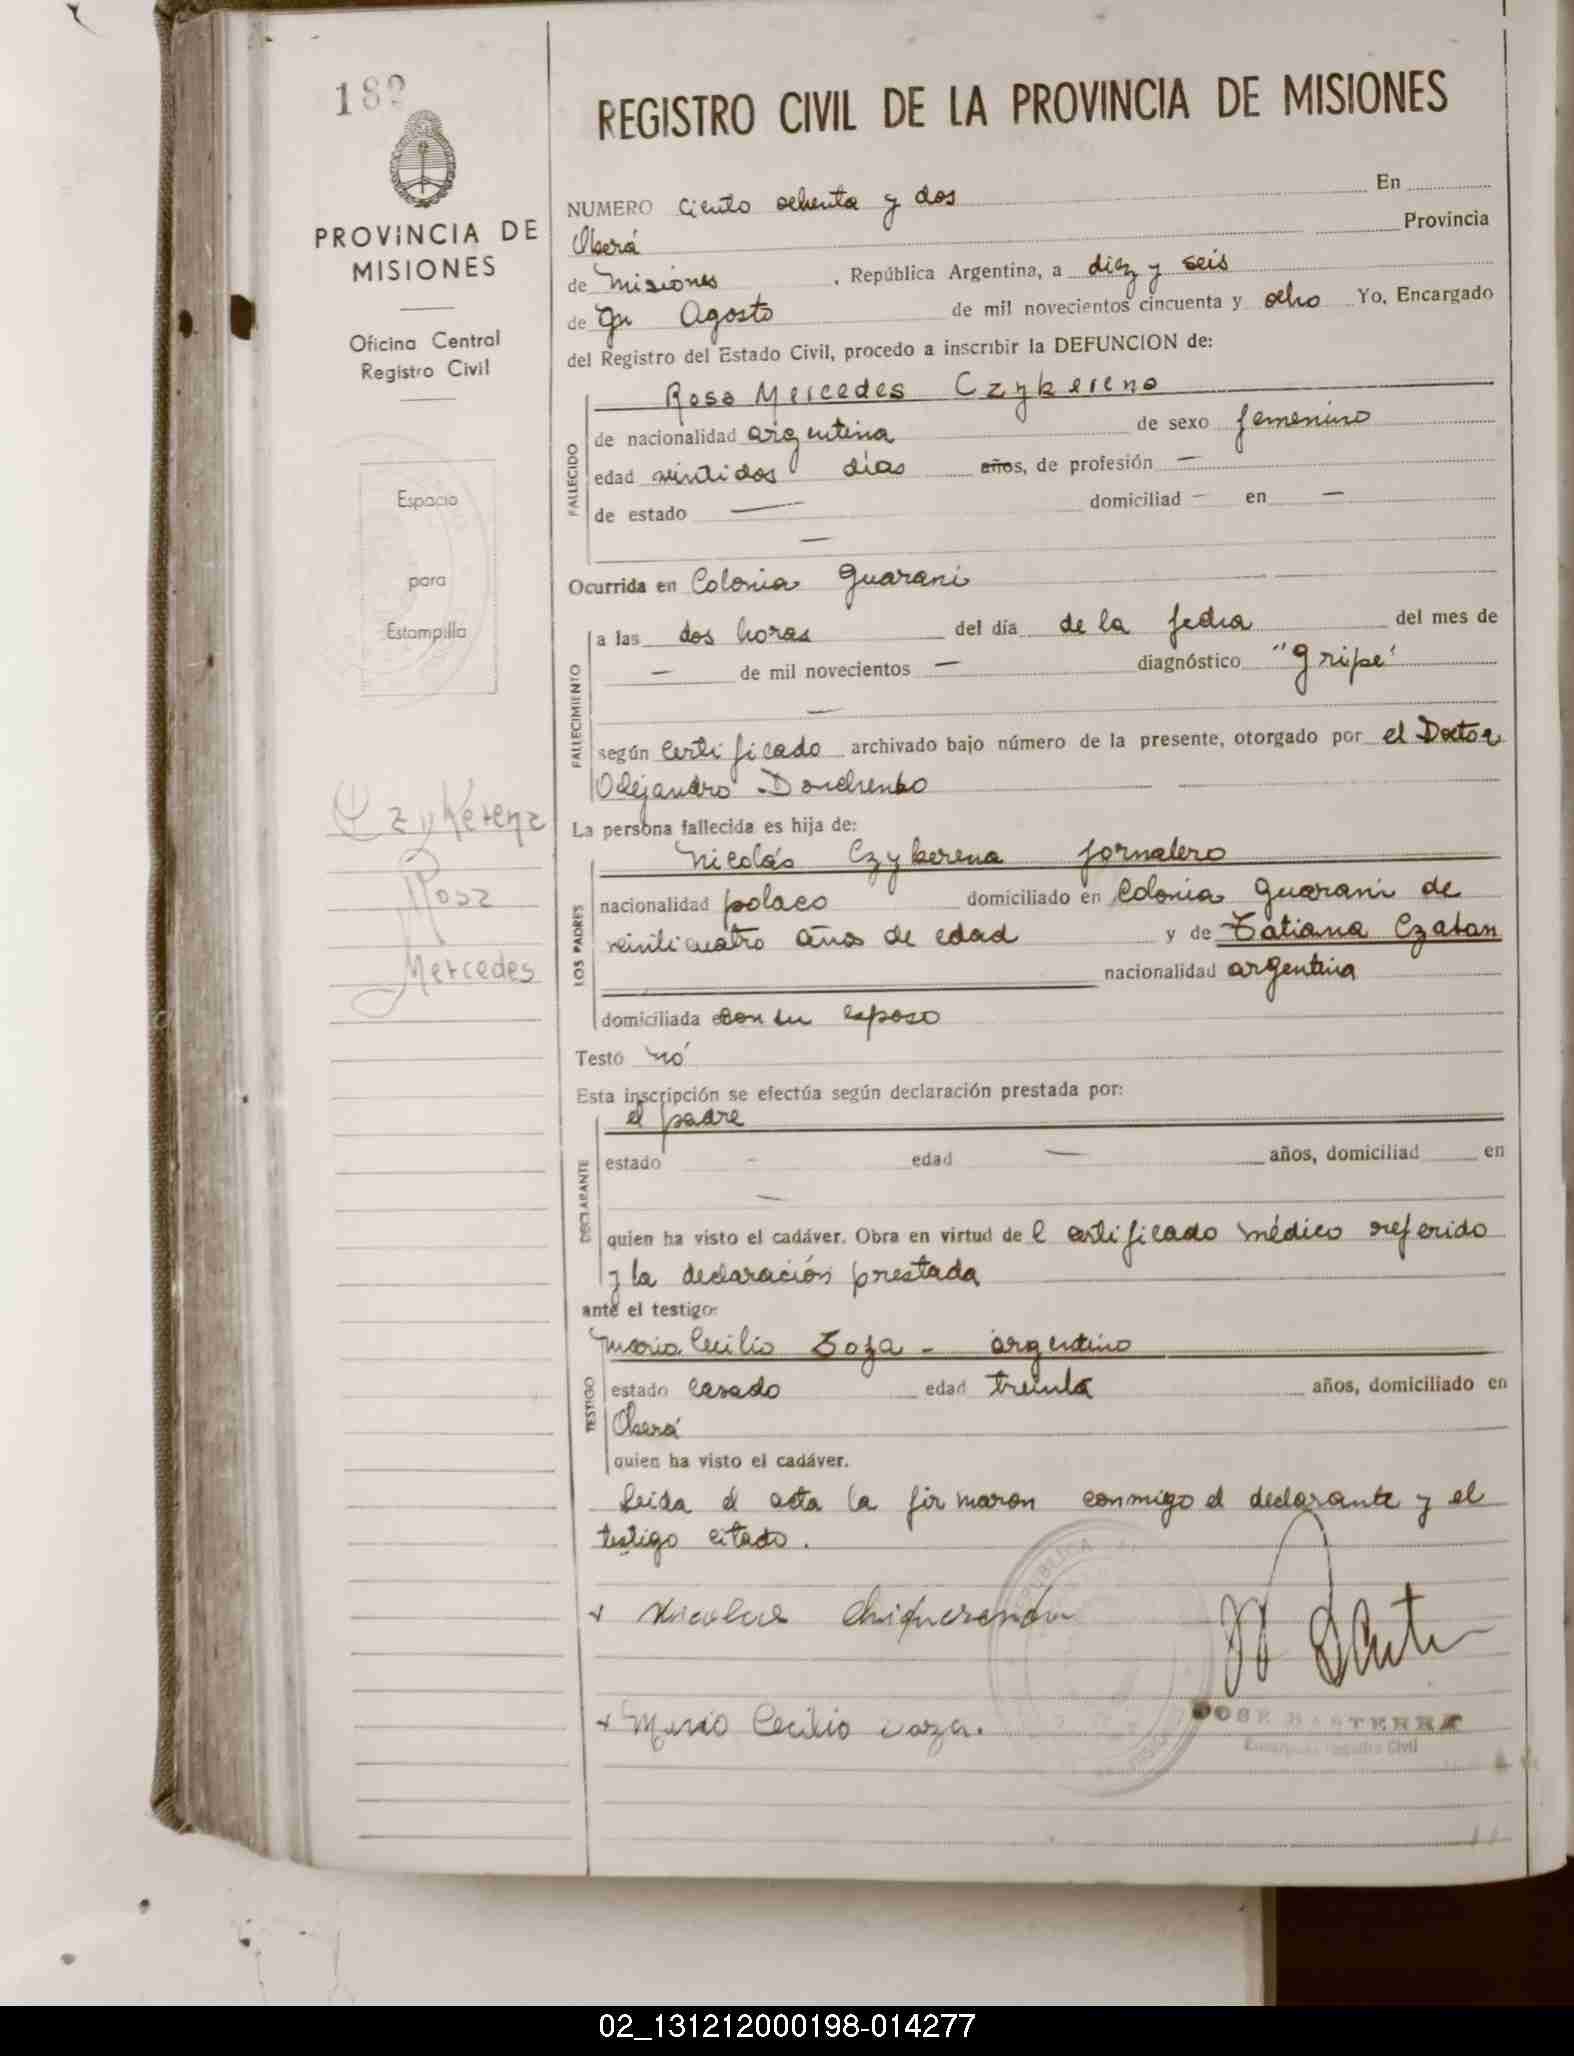 182
REGISTRO CIVIL DE LA PROVINCIA DE MISIONES
PROVINCIA DE
MISIONES
Oficina Central
Registro Civil
Espacio
para
Estampilla
Czykerena
Rosa
Mercedes
NUMERO ciento ochenta y dos En
Oberá Provincia
de Misiones, República Argentina, a diez y seis
de Agosto de mil novecientos cincuenta y ocho Yo, Encargado
del Registro del Estado Civil, procedo a inscribir la DEFUNCION de:
Rosa Mercedes Czykerena
FALLECIDO
de nacionalidad argentina de sexo femenino
edad veintidos días años, de profesión —
de estado — domiciliad — en —
—
Ocurrida en Colonia Guarani
FALLECIMIENTO
a las dos horas del día de la fecha del mes de
— de mil novecientos — diagnóstico "gripe"
—
según certificado archivado bajo número de la presente, otorgado por el Doctor
Alejandro
La persona fallecida es hija de:
LOS PADRES
Nicolás Czykerena jornalero
nacionalidad polaco domiciliado en Colonia Guarani de
veinticuatro años de edad y de Tatiana Czaban
nacionalidad argentina
domiciliada con su esposo
Testó no
Esta inscripción se efectúa según declaración prestada por:
DECLARANTE
el padre
estado - edad — años, domiciliad en
—
quien ha visto el cadáver. Obra en virtud del certificado médico referido
y la declaración prestada
ante el testigo:
TESTIGO
Mario Cecilio Soza - argentino
estado casado edad treinta años, domiciliado en
Oberá
quien ha visto el cadáver.
Leida el acta la firmaron conmigo el declarante y el
testigo citado.
+ Nicolas
+ Mario Cecilio Soza.
REPUBLICA
JOSE BASTERRA
Encargado Registro Civil
02_131212000198-014277